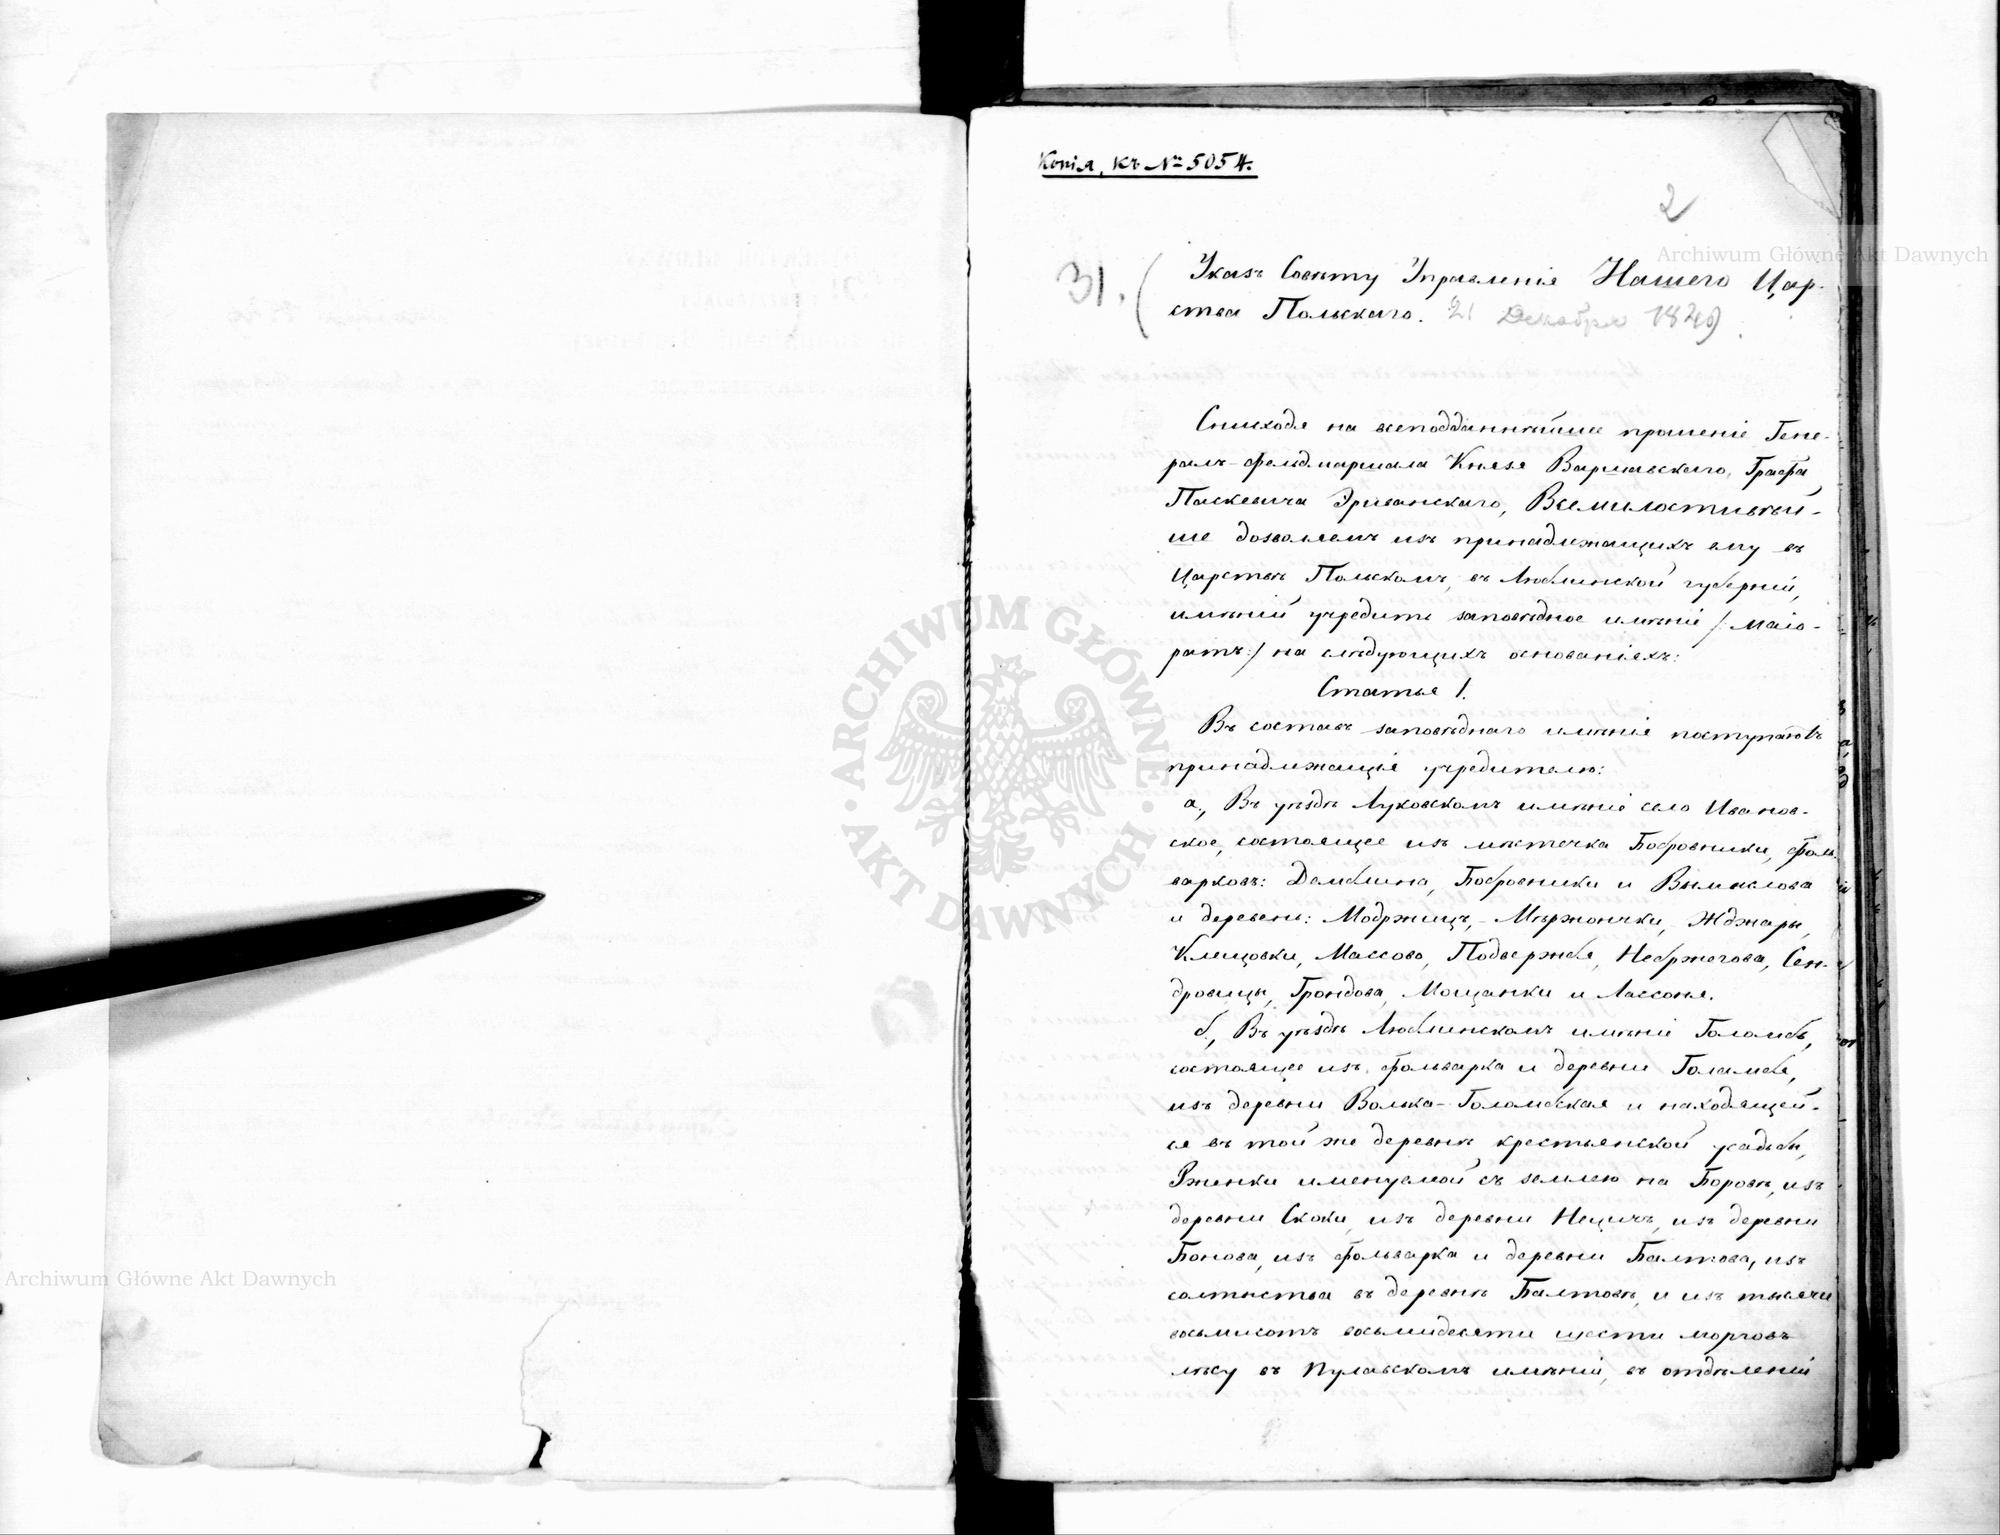 Копія, къ № 5054.
2
Archiwum Główne Akt Dawnych
31.
Указъ Совѣту Управленія Нашего Цар-
ства Польскаго. 21 Декабря 1849
Снисходя на всеподданнѣйшее прошеніе Гене-
ралъ-фельдмаршала Князя Варшавскаго, Графа
Паскевича Эриванскаго, Всемилостивѣй-
ше дозволяемъ изъ принадлежащихъ ему въ
Царствѣ Польскомъ, въ Люблинской губерніи,
имѣній учредить заповѣдное имѣніе /: маіо-
ратъ :/ на слѣдующихъ основаніяхъ:
Статья 1.
Въ составъ заповѣднаго имѣнія поступаютъ
принадлежащія учредителю:
а., Въ уѣздѣ Луковскомъ имѣніе село Иванов-
ское, состоящее изъ мѣстечка Бобровники, фоль-
варковъ: Демблина, Бобровники и Вымыслова
и деревень: Модржицъ, Мѣржончки, Жджары,
Клещовки, Массово, Подвержбя, Небржегова, Сен-
дровицы, Грондова, Мощанки и Лассонья.
б., Въ уѣздѣ Люблинскомъ имѣніе Голомбъ,
состоящее изъ фольварка и деревни Голамбя,
изъ деревни Волька-Голомбская и находящей-
ся въ той же деревнѣ крестьянской усадьбы,
Рженки именуемой съ землею на Боровѣ, изъ
деревни Скоки, изъ деревни Нецичъ, изъ деревни
Бонова, изъ фольварка и деревни Балтова, изъ
солтыства въ деревнѣ Балтовѣ, и изъ тысячи
восьмисотъ восьмидесяти шести морговъ
лѣсу въ Пулавскомъ имѣніи, въ отдѣленіи
ARCHIWUM GŁÓWNE AKT DAWNYCH
Archiwum Główne Akt Dawnych